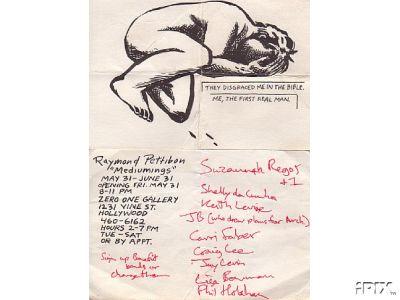 THEY DISGRACED ME IN THE BIBLE.
ME, THE FIRST REAL MAN.
Raymond Pettibon
"Mediumings"
MAY 31-JUNE 31
OPENING FRI. MAY 31
8-11 PM
ZERO ONE GALLERY
1231 VINE ST.
HOLLYWOOD
460-6162
HOURS 2-7 PM
TUE-SAT
OR BY APPT.
Sign up Benefit
bands or
change them
Suzannah
+1
Shelly da Cunha
Keith
JB (who drew plans for Arch)
Carri Faber
Craig Lee
Jay Levin
Lisa Bowman
Phil
iPIX